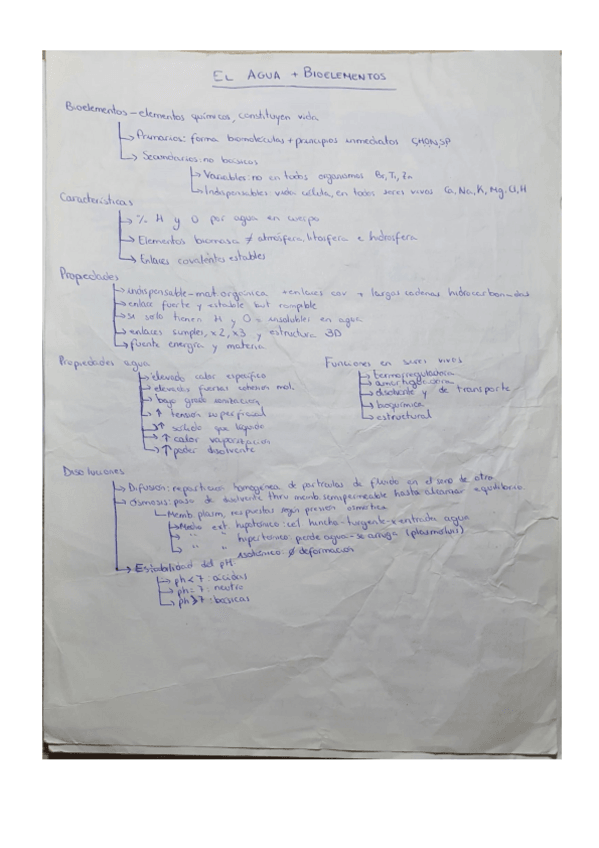 EL AGUA + BIOELEMENTOS
Bioelementos - elementos químicos, constituyen vida
Primarios: forma biomoléculas + principios inmediatos CHONSP
Secundarios: no básicos
Variables: no en todos organismos Br, Ti, Zn
Indispensables vida célula, en todos seres vivos Ca, Na, K, Mg, Cl, H
Características
% H y O por agua en cuerpo
Elementos biomasa ≠ atmósfera, litosfera e hidrosfera
Enlaces covalentes estables
Propiedades
indispensable - mat. orgánica + enlaces cov → largas cadenas hidrocarbonadas
enlace fuerte y estable but rompible
si solo tienen H y O = insolubles en agua
enlaces simples, x2, x3 y estructura 3D
fuente energía y materia
Propiedades agua
elevado calor específico
elevadas fuerzas cohesión mol.
bajo grado ionización
↑ tensión superficial
↑ sólido que líquido
↑ calor vaporización
↑ poder disolvente
Funciones en seres vivos
termorreguladora
amortiguadora
disolvente y de transporte
bioquímica
estructural
Disoluciones
Difusión: repartición homogénea de partículas de fluido en el seno de otro
ósmosis: paso de disolvente thru memb. semipermeable hasta alcanzar equilibrio
Memb plasm, respuestas según presión osmótica
Medio ext. hipotónico: cél hincha - turgente - x entrada agua
" " hipertónico: pierde agua - se arruga (plasmolisis)
isotónico: ∅ deformación
Estabilidad del pH:
ph < 7: ácidas
ph = 7: neutro
ph > 7: básicas